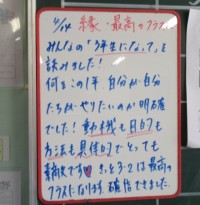 4/14 縁・最高のクラス
みんなの「3年生になって」を
読みました!
何をこの1年 自分が自分
たちがやりたいのか明確
でした! 動機も目的も
方法も具体的でとっても
素敵です♥ きっと3-2は最高の
クラスになります 確信できました。